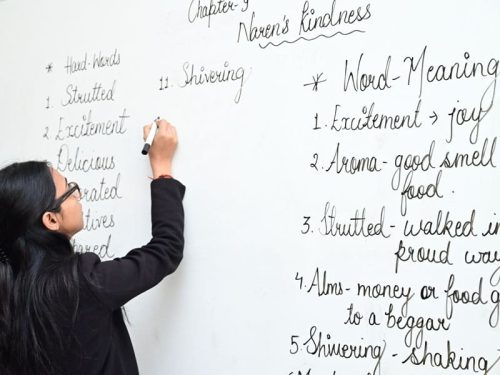 Chapter-9
Naren's Kindness
* Hard-Words
1. Strutted
2. Excitement
Delicious
11. Shivering
* Word-Meaning
1. Excitement → joy
2. Aroma - good smell
food.
3. Strutted - walked in
proud way
4. Alms - money or food
to a beggar
5. Shivering - shaking